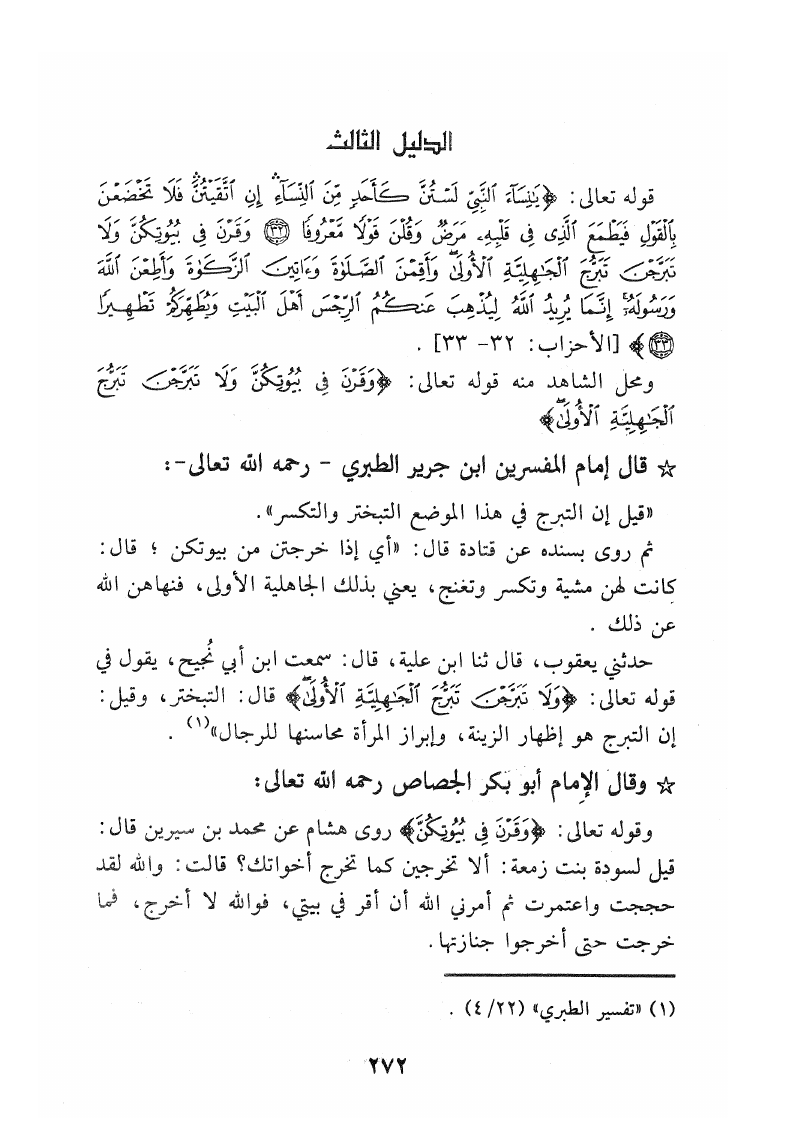 الدليل الثالث
قوله تعالى: ﴿يَٰنِسَآءَ ٱلنَّبِيِّ لَسۡتُنَّ كَأَحَدٖ مِّنَ ٱلنِّسَآءِۚ إِنِ ٱتَّقَيۡتُنَّۚ فَلَا تَخۡضَعۡنَ
بِٱلۡقَوۡلِ فَيَطۡمَعَ ٱلَّذِي فِي قَلۡبِهِۦ مَرَضٞ وَقُلۡنَ قَوۡلٗا مَّعۡرُوفٗا ٣٢ وَقَرۡنَ فِي بُيُوتِكُنَّ وَلَا
تَبَرَّجۡنَ تَبَرُّجَ ٱلۡجَٰهِلِيَّةِ ٱلۡأُولَىٰۖ وَأَقِمۡنَ ٱلصَّلَوٰةَ وَءَاتِينَ ٱلزَّكَوٰةَ وَأَطِعۡنَ ٱللَّهَ
وَرَسُولَهُۥٓۚ إِنَّمَا يُرِيدُ ٱللَّهُ لِيُذۡهِبَ عَنكُمُ ٱلرِّجۡسَ أَهۡلَ ٱلۡبَيۡتِ وَيُطَهِّرَكُمۡ تَطۡهِيرٗا
٣٣﴾ [الأحزاب: ٣٢- ٣٣] .
ومحل الشاهد منه قوله تعالى: ﴿وَقَرۡنَ فِي بُيُوتِكُنَّ وَلَا تَبَرَّجۡنَ تَبَرُّجَ
ٱلۡجَٰهِلِيَّةِ ٱلۡأُولَىٰۖ﴾
☆ قال إمام المفسرين ابن جرير الطبري - رحمه الله تعالى-:
«قيل إن التبرج في هذا الموضع التبختر والتكسر».
ثم روى بسنده عن قتادة قال: «أي إذا خرجتن من بيوتكن ؛ قال:
كانت لهن مشية وتكسر وتغنج، يعني بذلك الجاهلية الأولى، فنهاهن الله
عن ذلك .
حدثني يعقوب، قال ثنا ابن علية، قال: سمعت ابن أبي نُجيح، يقول في
قوله تعالى: ﴿وَلَا تَبَرَّجۡنَ تَبَرُّجَ ٱلۡجَٰهِلِيَّةِ ٱلۡأُولَىٰۖ﴾ قال: التبختر، وقيل:
إن التبرج هو إظهار الزينة، وإبراز المرأة محاسنها للرجال»(١) .
☆ وقال الإمام أبو بكر الجصاص رحمه الله تعالى:
وقوله تعالى: ﴿وَقَرۡنَ فِي بُيُوتِكُنَّ﴾ روى هشام عن محمد بن سيرين قال:
قيل لسودة بنت زمعة: ألا تخرجين كما تخرج أخواتك؟ قالت: والله لقد
حججت واعتمرت ثم أمرني الله أن أقر في بيتي، فوالله لا أخرج، فما
خرجت حتى أخرجوا جنازتها.
(١) «تفسير الطبري» (٤/٢٢) .
٢٧٢